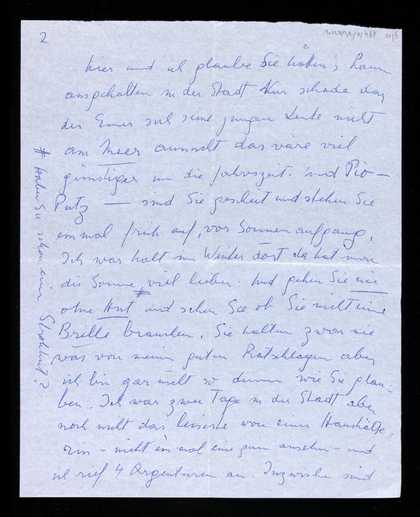 2
hier und ich glaube Sie haben's kaum
auszuhalten in der Stadt. Nur schade dass
der Emir sich seine jungen Leute nicht
am Meer aussucht das wäre viel
günstiger um die Jahrszeit. Und Pio-
Putz — sind Sie gescheit und stehen Sie
einmal früh auf, vor Sonnenaufgang,
Ich war halt im Winter dort da hat man
die Sonne viel lieber. Und gehen Sie nie
ohne Hut # und sehen Sie ob Sie nicht eine
Brille brauchen. Sie halten zwar nie
was von meinen guten Ratschlägen aber
ich bin gar nicht so dumm wie Sie glau-
ben. Ich war zwei Tage in der Stadt aber
noch nicht das leiseste von einer Haushälte-
rin - nicht einmal eine zum ansehen - und
ich rief 4 Argenturen an. Inzwischen sind
# Haben Sie schon einen Strohhut?